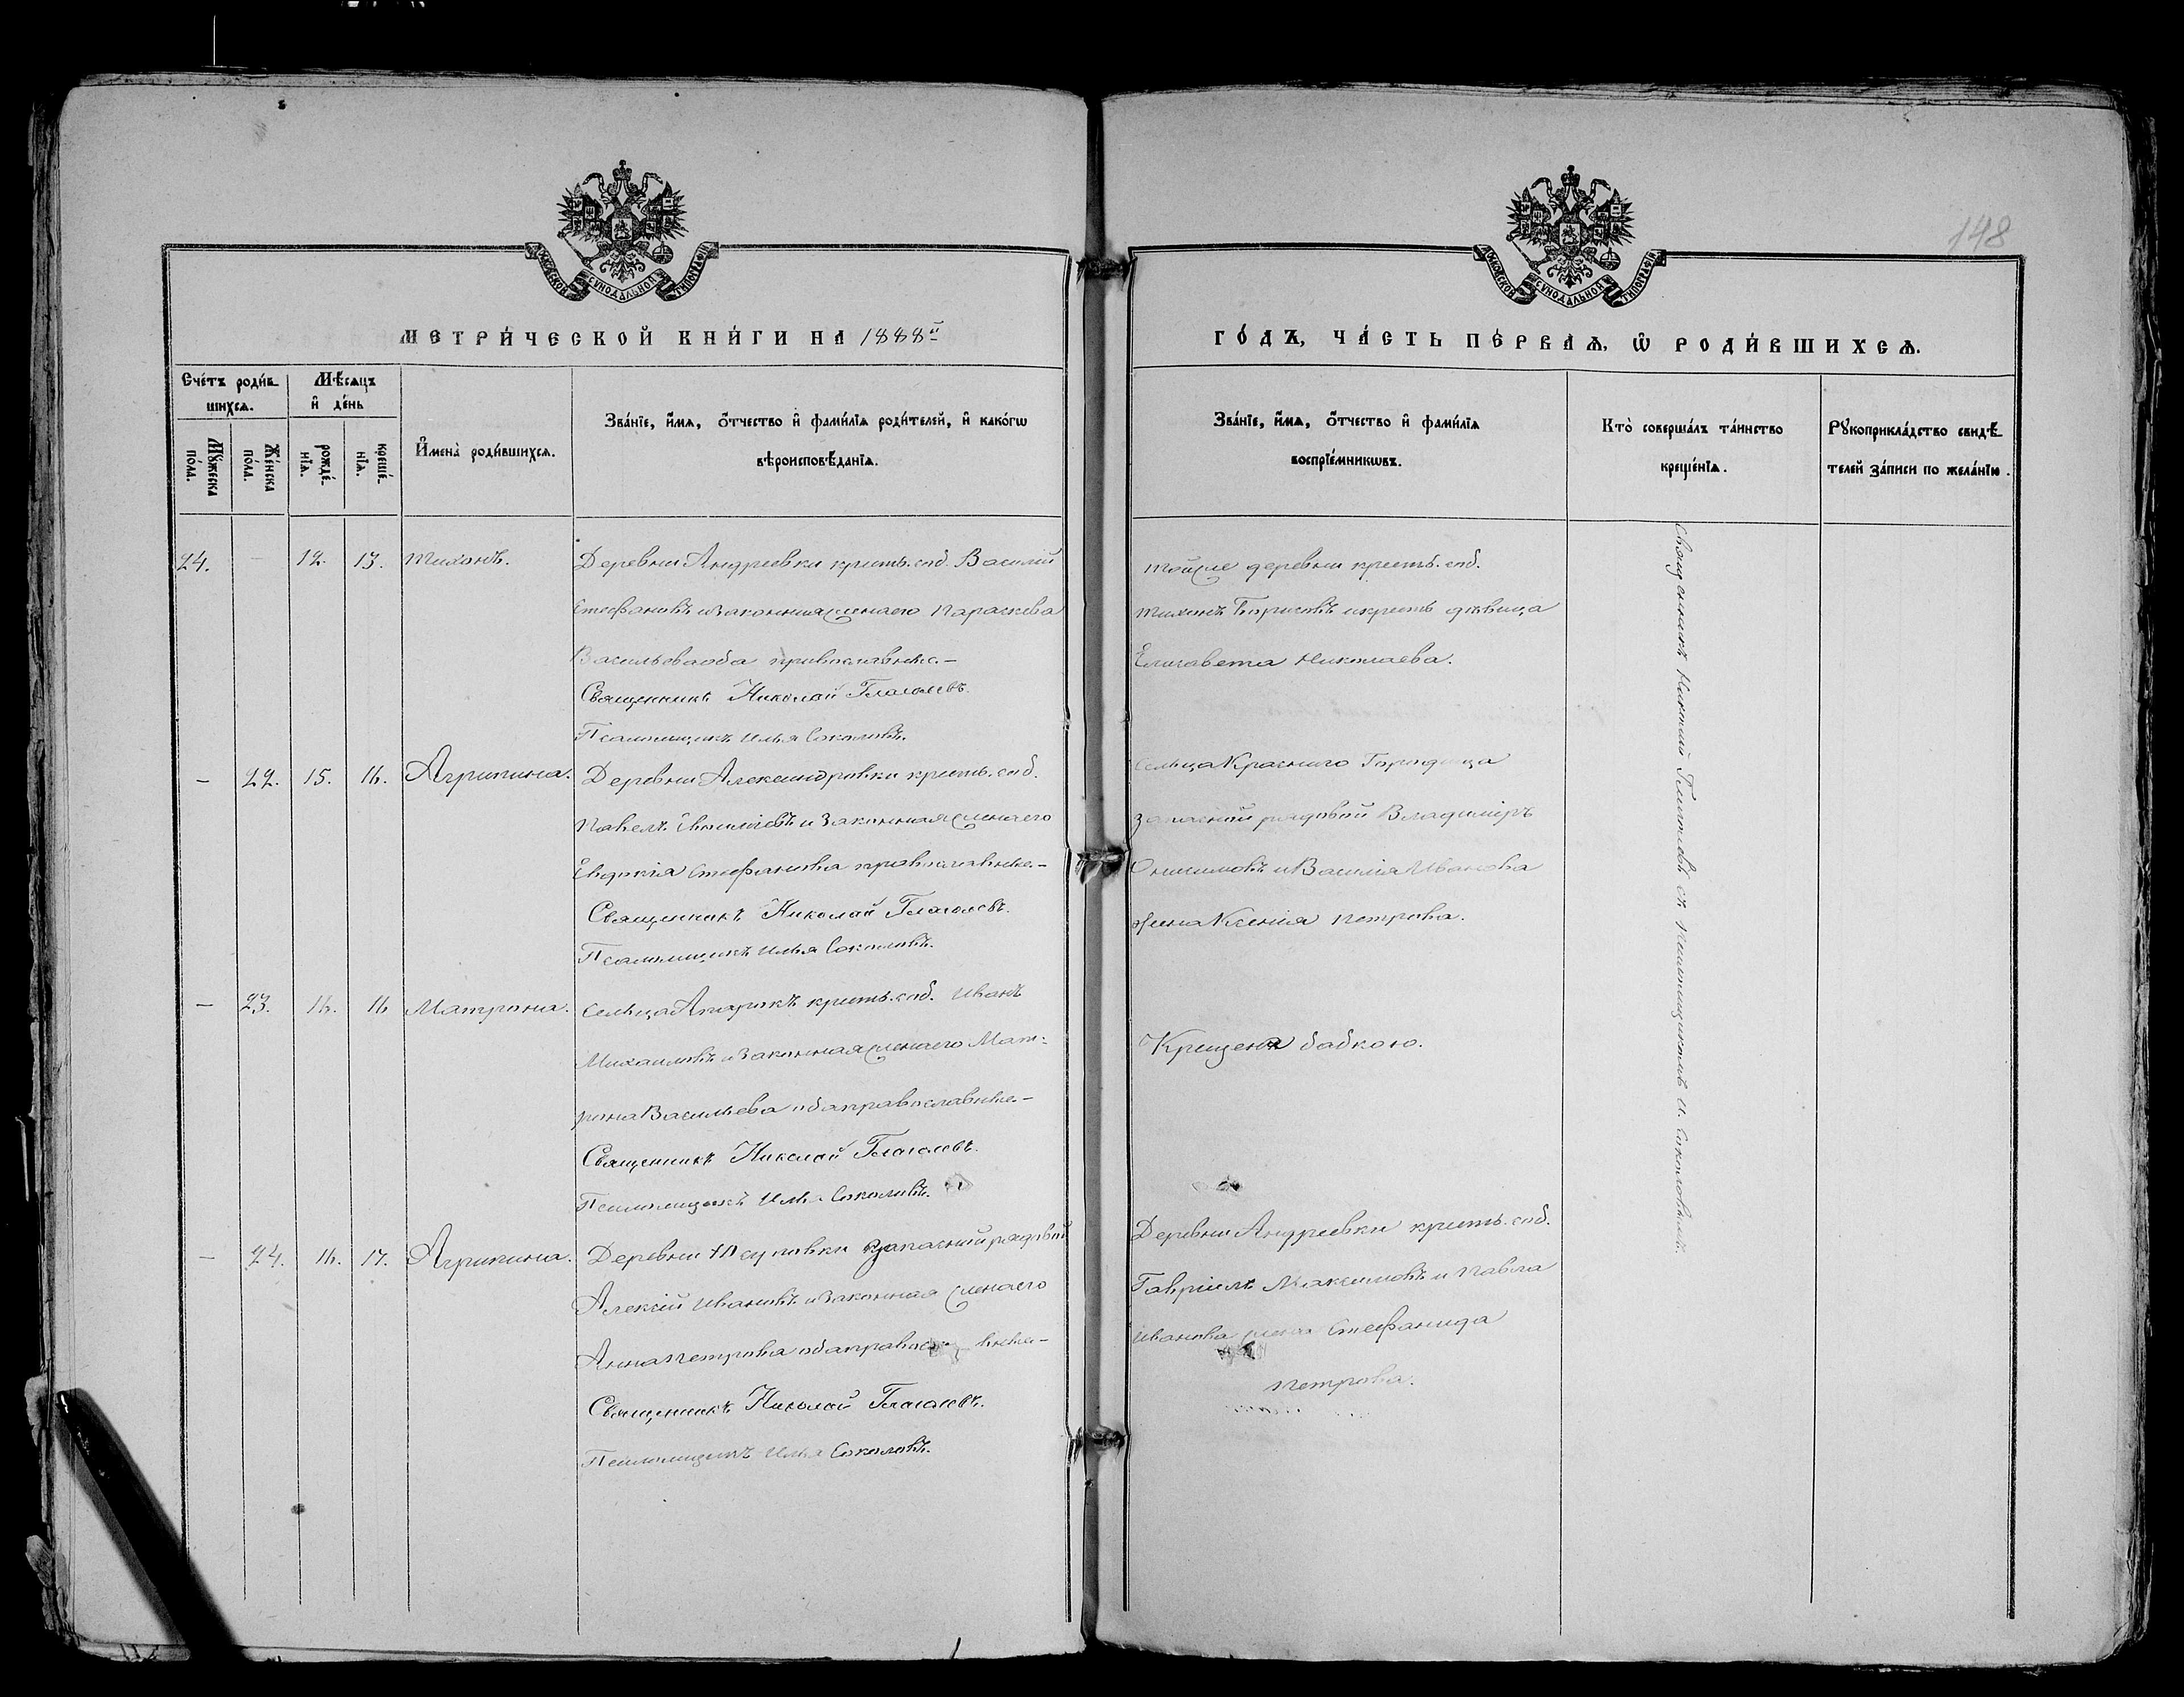 148
МОСКОВСКОЙ СѴНОДАЛЬНОЙ ТИПОГРАФІИ
МОСКОВСКОЙ СѴНОДАЛЬНОЙ ТИПОГРАФІИ
МЕТРИ́ЧЕСКОЙ КНИ́ГИ НА 1888й
ГО́ДЪ, ЧА́СТЬ ПЕ́РВАѦ, Ѡ҆ РОДИ́ВШИХСѦ.
Сче́тъ роди́в-
шихсѧ.
Мꙋ́жеска
по́ла.
Же́нска
по́ла.
Мѣ́сѧцъ
и҆ де́нь
рожде́-
нїѧ.
креще́-
нїѧ.
И҆мена̀ роди́вшихсѧ.
Зва́нїе, и҆́мѧ, ѻ҆́тчество и҆ фами́лїѧ роди́телей, и҆ како́гѡ
вѣроисповѣ́данїѧ.
Зва́нїе, и҆́мѧ, ѻ҆́тчество и҆ фами́лїѧ
воспрїе́мникѡвъ.
Кто̀ соверша́лъ та́инство
креще́нїѧ.
Рꙋкоприкла́дство свидѣ́-
телей за́писи по жела́нїю.
24. — 12. 13. Тихонъ.
Деревни Андреевки крест. соб. Василій
Стефановъ и законная жена его Параскева
Васильева оба православные.—
Священникъ Николай Глаголевъ.
Псаломщикъ Илья Соколовъ.
Той же деревни крест. соб.
Тихонъ Борисовъ и крест девица
Елисавета Николаева.
— 22. 15. 16. Агрипина.
Деревни Александровки крест. соб.
Павелъ и законная жена его
Евдокія Стефанова православные.—
Священникъ Николай Глаголевъ.
Псаломщикъ Илья Соколовъ.
Сельца Краснаго Городища
запасной рядовой Владиміръ
Онисимовъ и Василія Иванова
жена Ксенія Петрова.
— 23. 16. 16 Матрона.
Сельца крест. соб. Иванъ
Михаиловъ и законная жена его Мат-
рона Васильева оба православные.—
Священникъ Николай Глаголевъ.
Псаломщикъ Илья Соколовъ.
Крещена бабкою.
— 24. 16. 17. Агрипина.
Деревни запасной рядовой
Алексій Ивановъ и законная жена его
Анна Петрова оба православные—
Священникъ Николай Глаголевъ.
Псаломщикъ Илья Соколовъ.
Деревни Андреевки крест. соб.
Гавріилъ Максимовъ и Павла
Иванова жена Стефанида
Петрова.
Священникъ Николай Глаголевъ съ псаломщикомъ И. Соколовымъ.